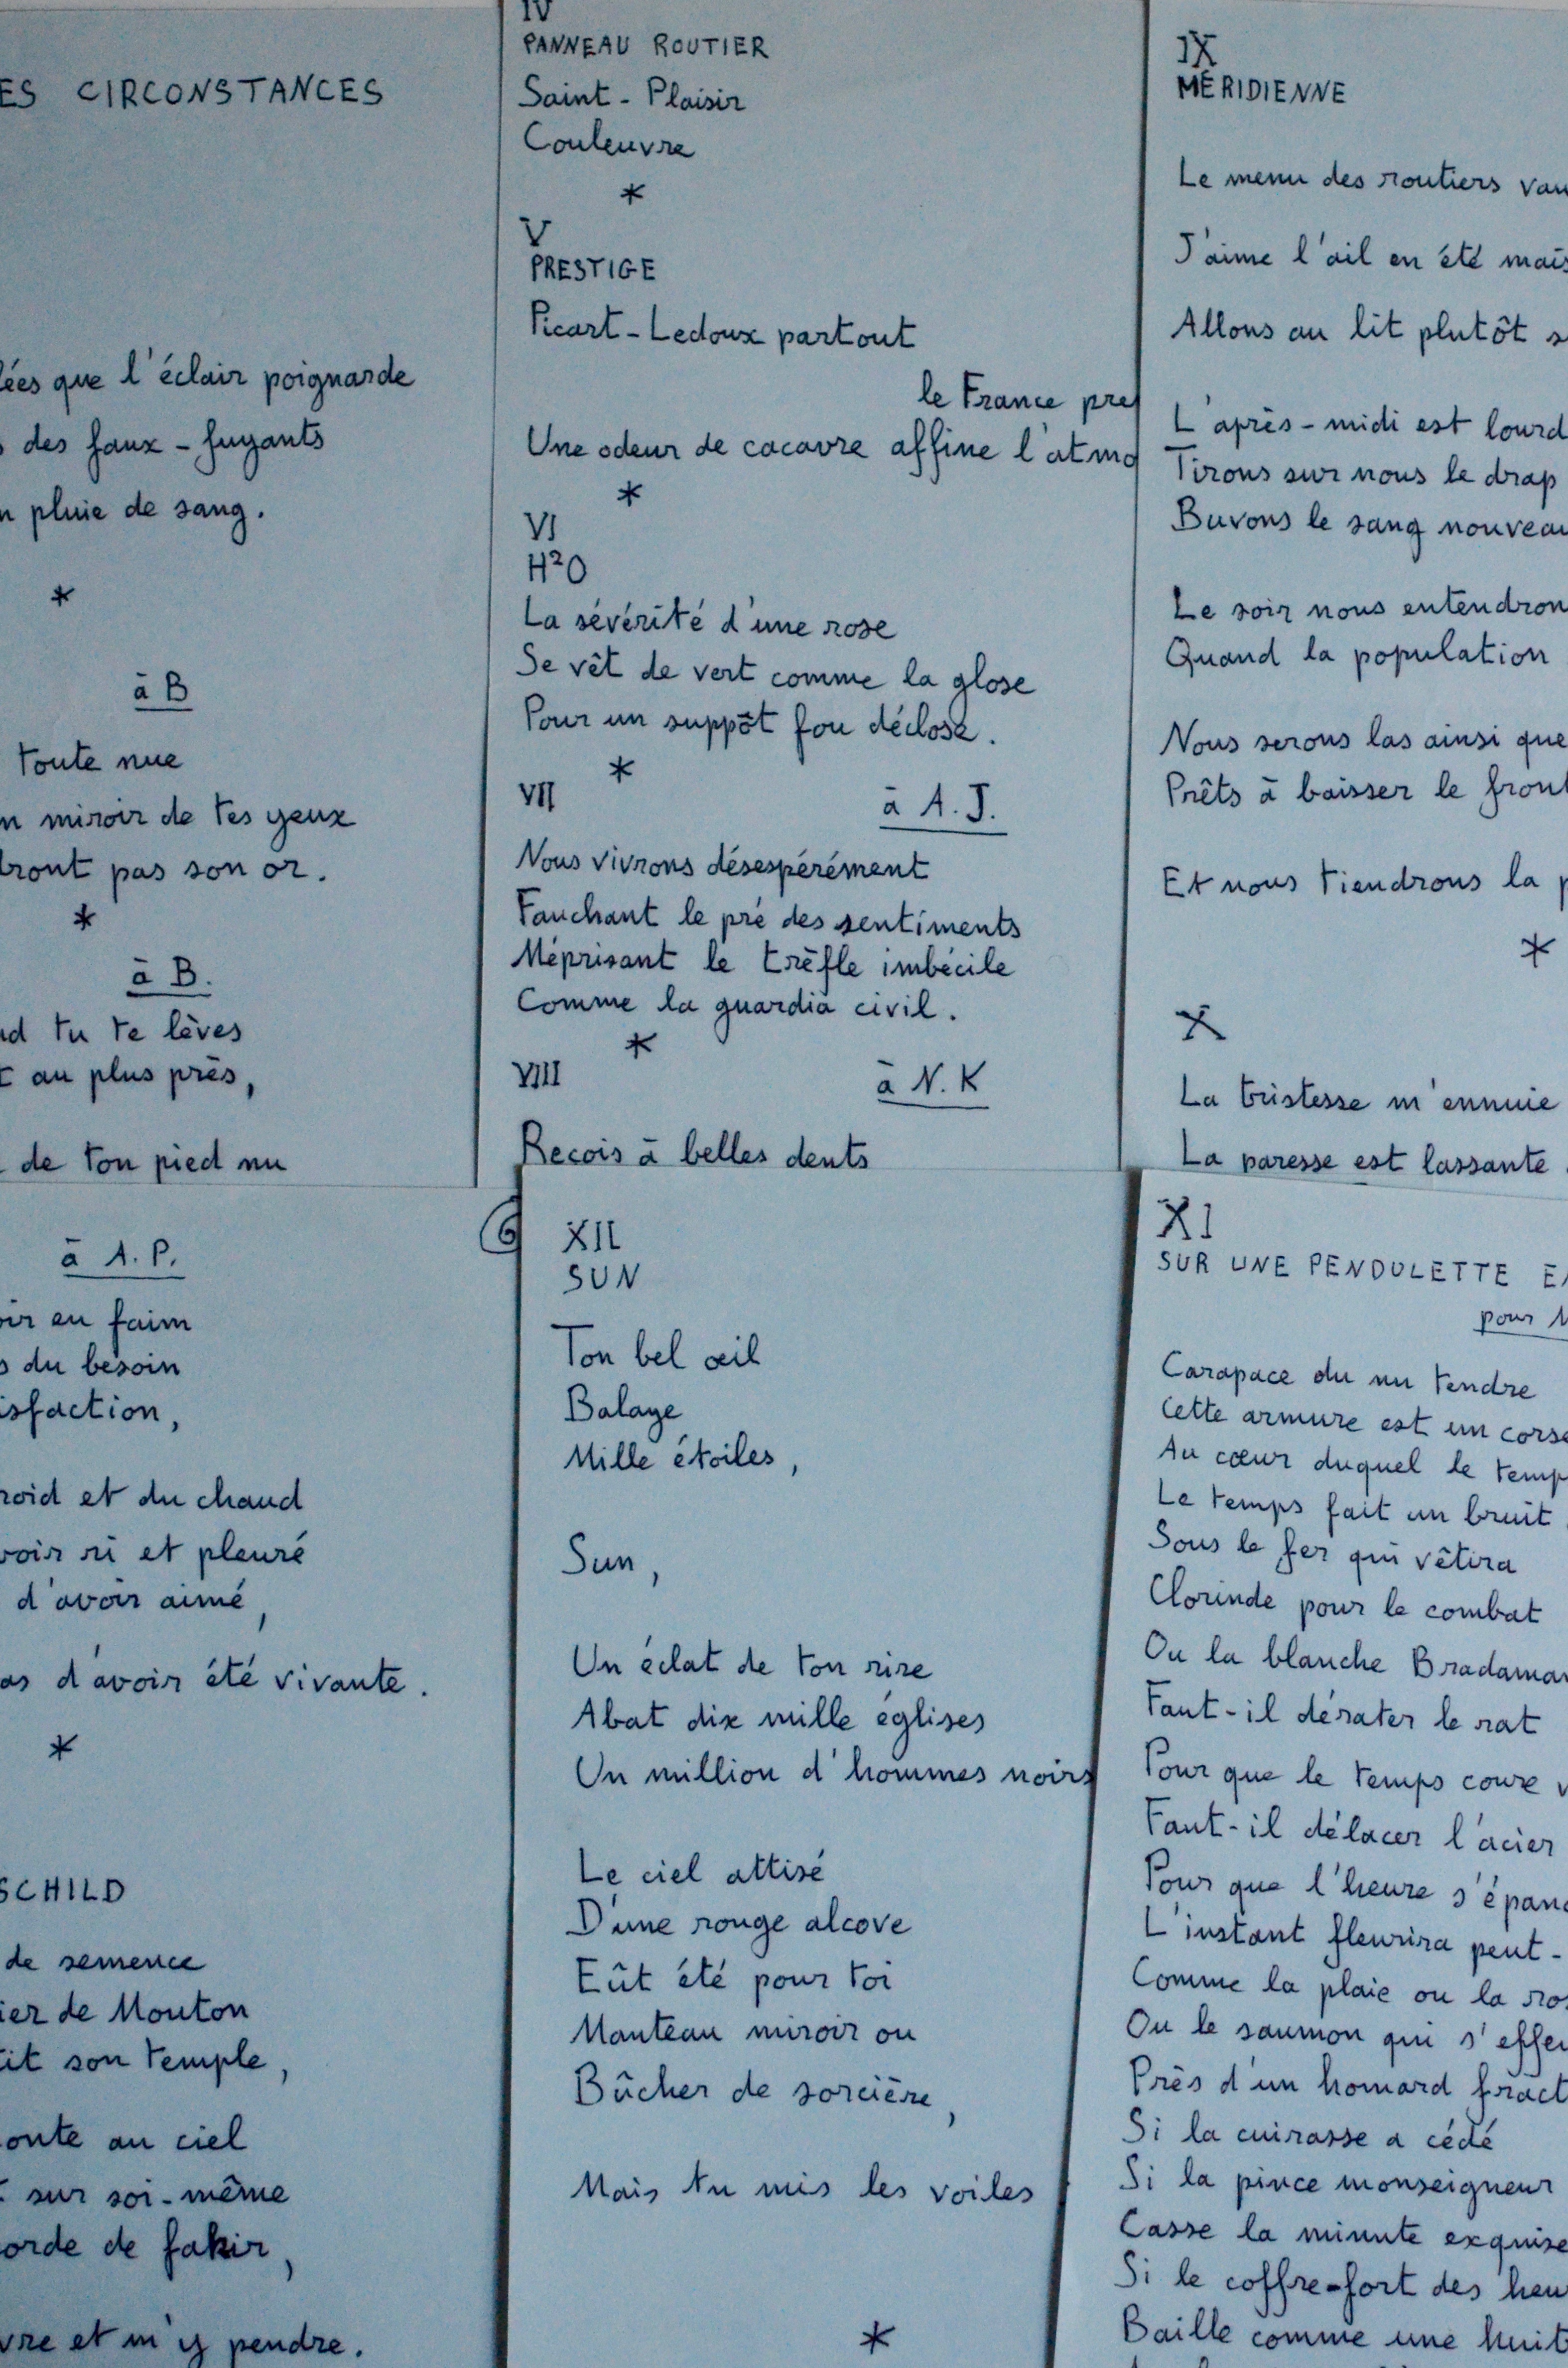 ES CIRCONSTANCES
ées que l'éclair poignarde
s des faux-fuyants
n pluie de sang.
*
à B
toute nue
n miroir de tes yeux
dront pas son or.
*
à B.
nd tu te lèves
t au plus près,
de ton pied nu
IV
PANNEAU ROUTIER
Saint-Plaisir
Couleuvre
*
V
PRESTIGE
Picart-Ledoux partout
le France pre
Une odeur de cacavre affine l'atmo
*
VI
H²O
La sévérité d'une rose
Se vêt de vert comme la glose
Pour un suppôt fou déclose.
*
VII
à A.J.
Nous vivrons désespérément
Fauchant le pré des sentiments
Méprisant le trèfle imbécile
Comme la guardia civil.
*
VIII
à N.K
Recois à belles dents
IX
MÉRIDIENNE
Le menu des routiers vau
J'aime l'ail en été mais
Allons au lit plutôt s
L'après-midi est lourd
Tirons sur nous le drap
Buvons le sang nouveau
Le soir nous entendron
Quand la population
Nous serons las ainsi que
Prêts à baisser le front
Et nous tiendrons la p
*
X
La tristesse m'ennuie
La paresse est lassante
à A.P.
oir eu faim
s du besoin
isfaction,
roid et du chaud
voir ri et pleuré
d'avoir aimé,
as d'avoir été vivante.
*
SCHILD
de semence
ier de Mouton
tit son temple,
onte au ciel
t sur soi-même
orde de fakir,
vre et m'y pendre.
6
XII
SUN
Ton bel œil
Balaye
Mille étoiles,
Sun,
Un éclat de ton rire
Abat dix mille églises
Un million d'hommes noirs
Le ciel attisé
D'une rouge alcove
Eût été pour toi
Manteau miroir ou
Bûcher de sorcière,
Mais tu mis les voiles
*
XI
SUR UNE PENDULETTE E
pour
Carapace du nu tendre
Cette armure est un corse
Au cœur duquel le temp
Le temps fait un bruit
Sous le fer qui vêtira
Clorinde pour le combat
Ou la blanche Bradaman
Faut-il dérater le rat
Pour que le temps coure v
Faut-il délacer l'acier
Pour que l'heure s'épan
L'instant fleurira peut-
Comme la plaie ou la ros
Ou le saumon qui s'effeu
Près d'un homard fract
Si la cuirasse a cédé
Si la pince monseigneur
Casse la minute exquise
Si le coffre-fort des heu
Baille comme une huit